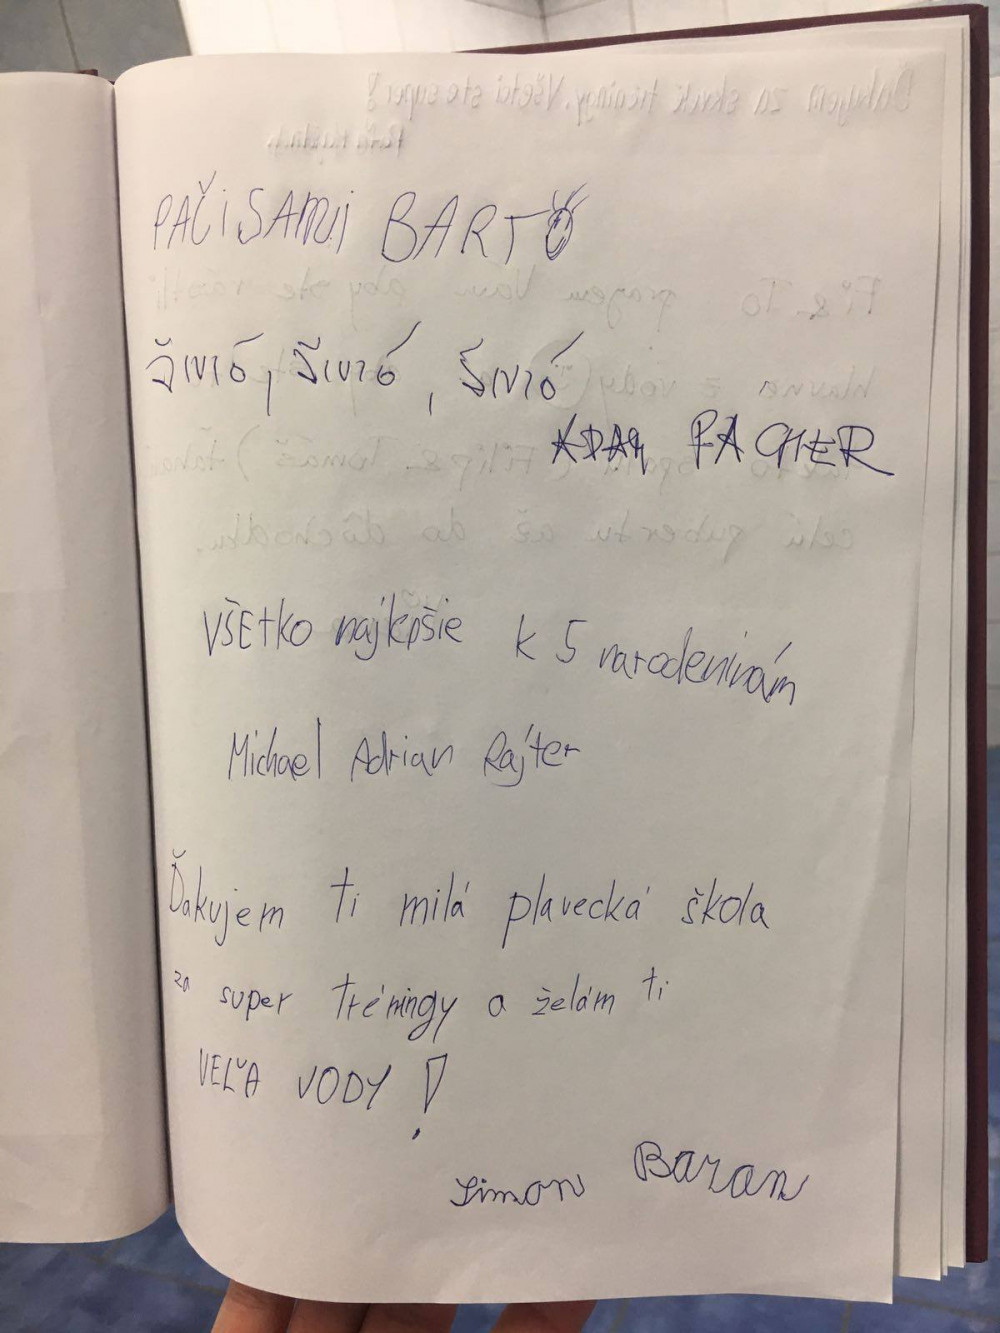 PAČiSAMi BARTO
Živió, Živió, Živió
ADAM PAGHER
VŠEtko najlepšie k 5 narodeninám
Michael Adrian Rajter
Ďakujem ti milá plavecká škola
za super tréningy a želám ti
VEĽA VODY!
Simon Baran